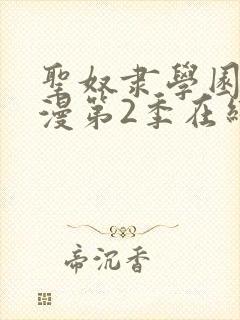 聖奴隶學園
漫第2季在
帝沉香